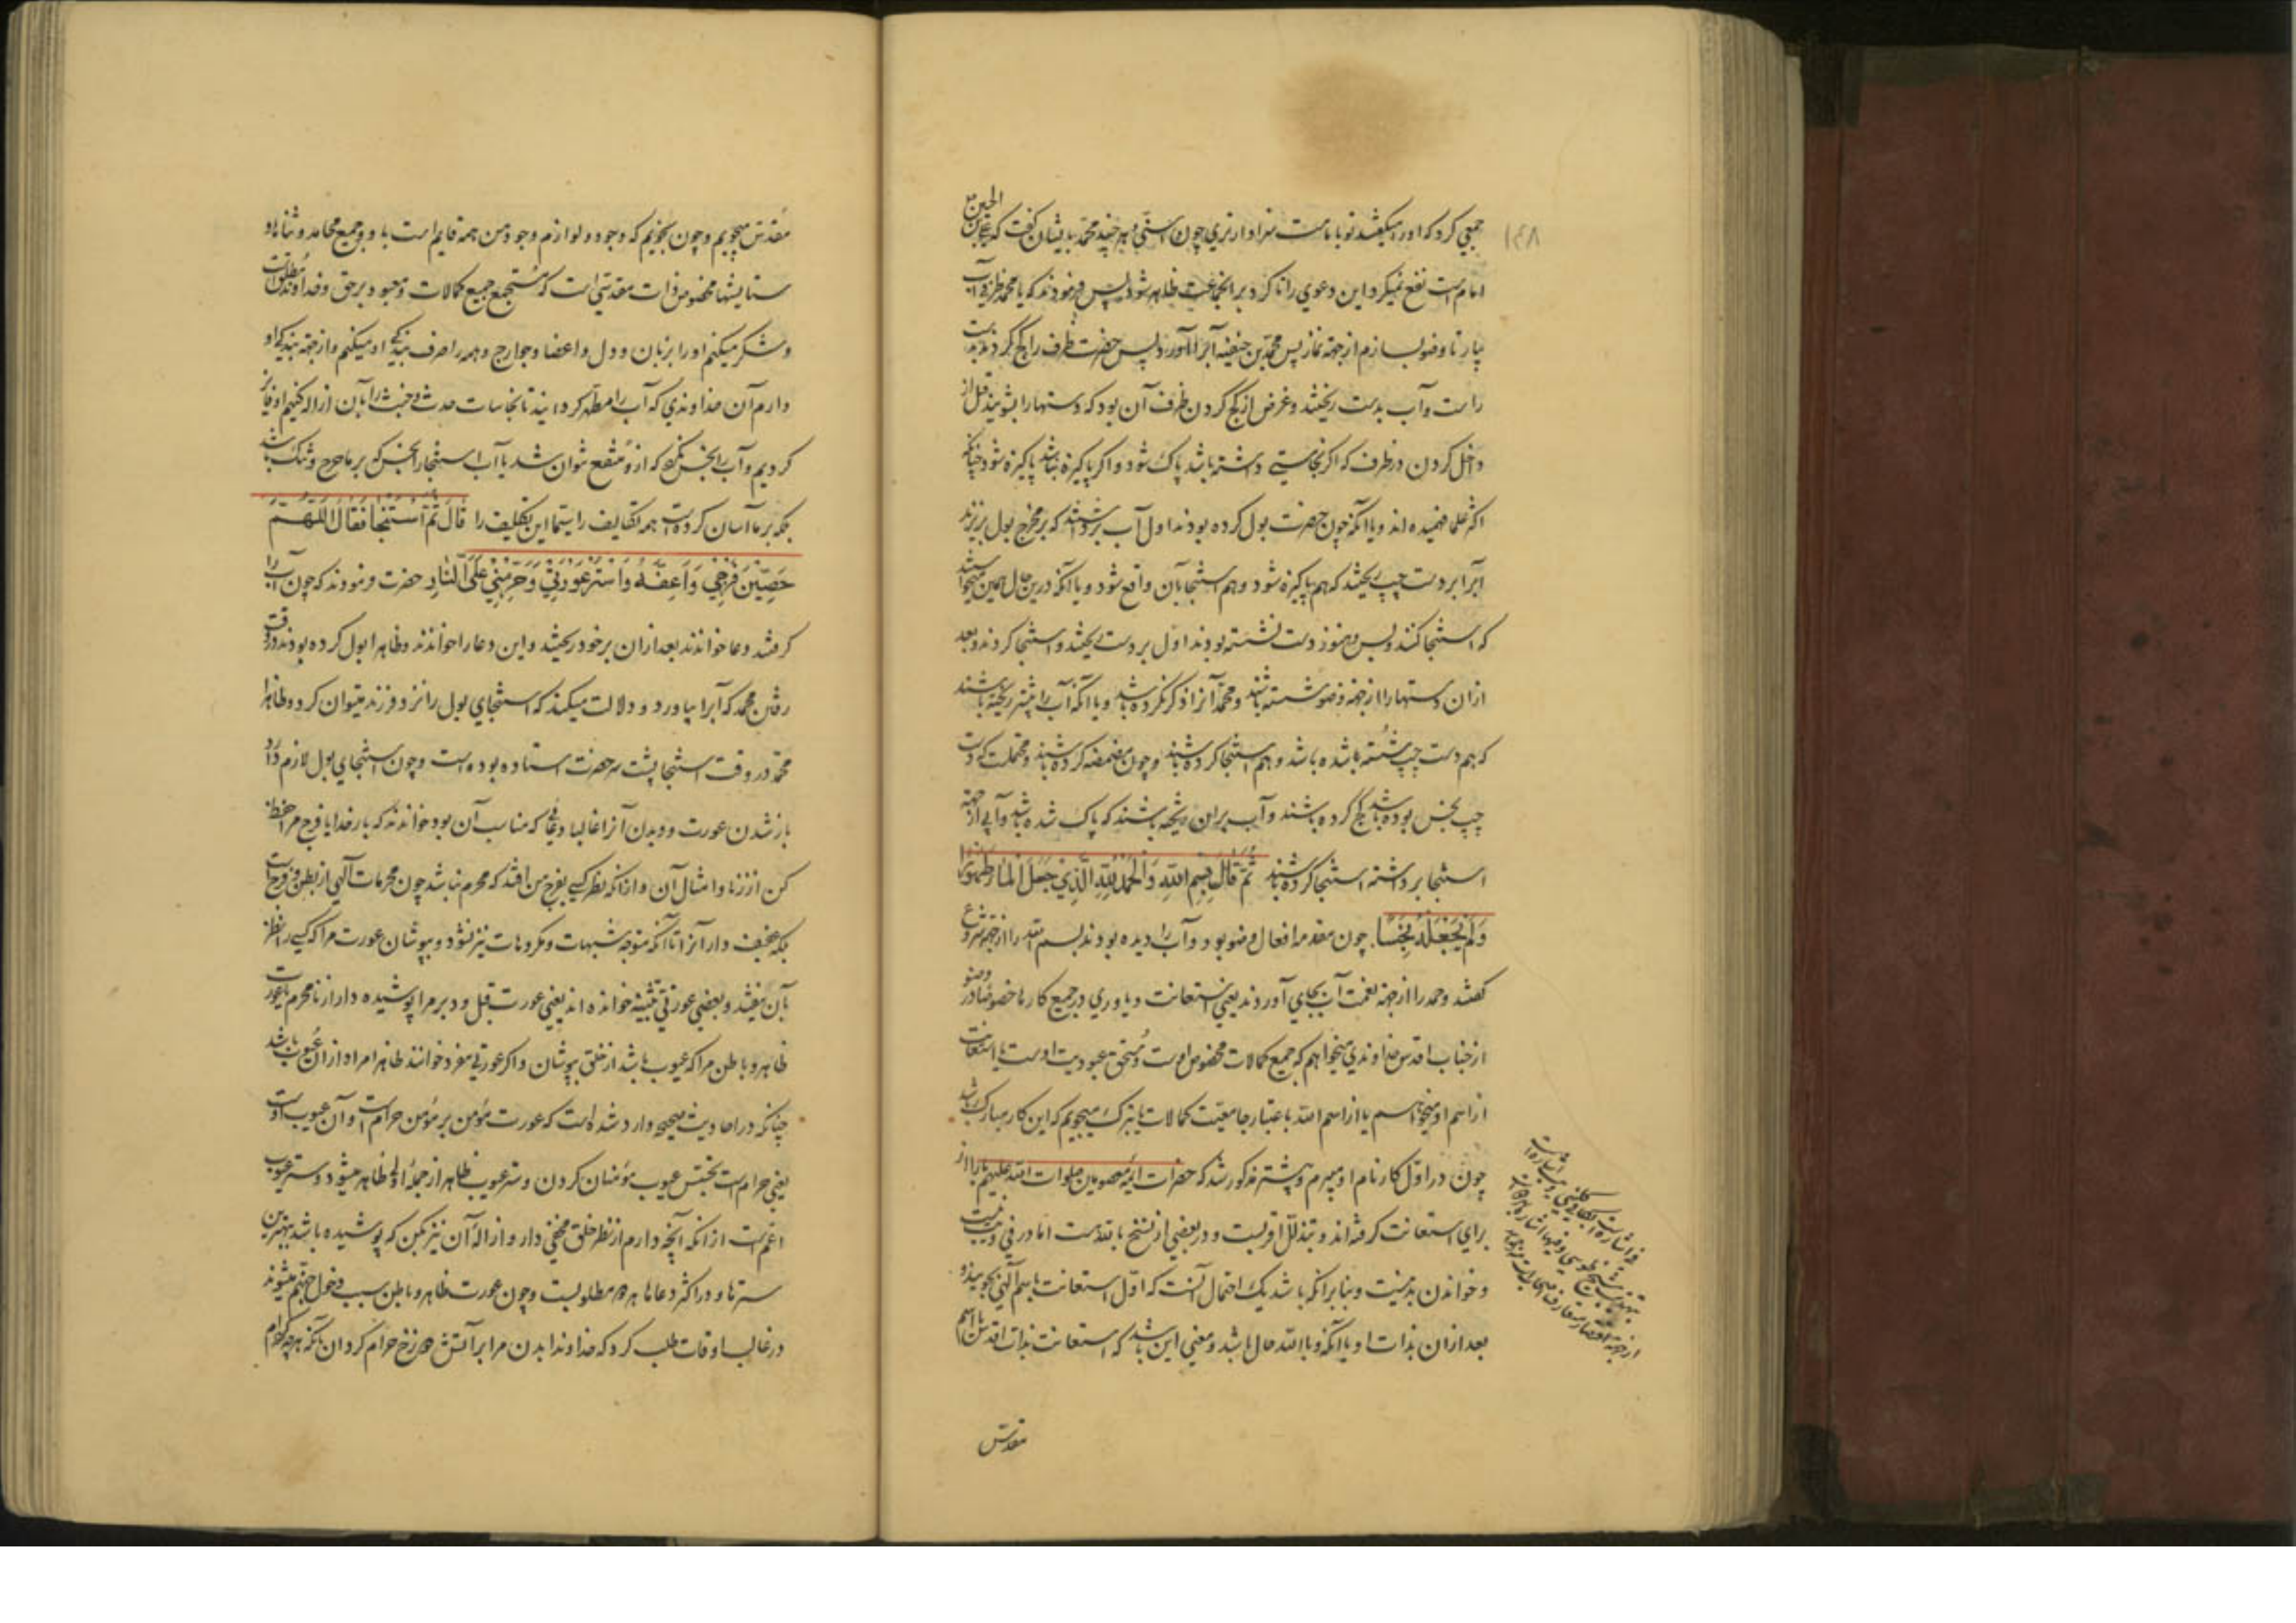 جمعی کرد که او را میکفتند تو بامامت سزاوارتری چون و هر چند محمد بایشان کفت که علی بن الحسین
امام است نفع نمیکرد این دعوی را تا کرد بر انجماعت ظاهر شود پس فرمودند که یا محمد ظرف آب
بیار تا وضو بسازم از جهة نماز پس محمد بن حنفیه آب را آورد پس حضرت ظرف را کج کردند بدست
راست و آب بدست ریختند و غرض از کج کردن ظرف آن بود که دستها را بشویند قبل از
داخل کردن در ظرف که اکر نجاستی داشته باشد پاک شود و اکر پاکیزه باشد پاکیزه شود چنانکه
اکثر علما فهمیده اند و یا آنکه چون حضرت بول کرده بودند اول آب برداشتند که بر مخرج بول بریزند
آب را بر دست چپ ریختند که هم پاکیزه شود و هم استنجا بآن واقع شود و یا آنکه درین حال همین میخواستند
که استنجا کنند و بس و هنوز دست نشسته بودند اول بر دست ریختند و استنجا کردند و بعد
از ان دستها را از جهة وضو شسته باشند و محمد آنرا ذکر نکرده باشد و یا آنکه آب را بیشتر ریخته باشند
که هم دست چپ شسته باشد و هم استنجا کرده باشند و چون مضمضه کرده باشند و محتملست که دست
چپ نجس بوده باشد کج کرده باشند و آب بران ریخته باشند که پاک شده باشد و آبی از جهة
استنجا برداشته استنجا کرده باشند ثُمَّ قَالَ بِسْمِ اللّهِ وَالْحَمْدُ لِلّهِ الَّذِي جَعَلَ الْمَاءَ طَهُورًا
وَلَمْ يَجْعَلْهُ نَجِسًا چون مقدمه افعال وضو بود و آب را دیده بودند بسم الله را از جهة شروع
کفتند و حمد را از جهة نعمت آب بجای آوردند یعنی استعانت و یاوری در جمیع کارها خصوصا در وضو
از جناب اقدس خداوندی میخواهم که جمیع کمالات مخصوص اوست و مستحق عبودیت اوست یا استعانت
از اسم او میخواهم یا از اسم الله باعتبار جامعیت کمالات یا تبرک میجویم که این کار مبارک باشد
چون در اول کار نام او میبرم و پیشتر مذکور شد که حضرات ایمه معصومین صلوات الله علیهم با را از
برای استعانت کرفته اند و بتذلل اقربست و در بعضی از نسخ بالله هست اما در فی و یب نیست
و خواندن بد نیست و بنابر انکه باشد یک احتمال آنست که اول استعانت باسم الهی بجویند و
بعد ازان بذات او یا آنکه و بالله حال باشد و معنی این باشد که استعانت بذات اقدس یا اسم
مقدس
مقدس میجویم و چون نجویم که وجود و لوازم وجود من همه قایم است باو و جمیع محامد و ثناها و
ستایشها مخصوص ذات مقدسی است که مستجمع جمیع کمالات و معبود برحق و خداوند مطلق است
و شکر میکنم او را بزبان و دل و اعضا و جوارح و همه را صرف بندکی او میکنم و از جهة بندکی او
دارم آن خداوندی که آب را مطهر کردانید تا نجاسات حدث و خبث را بآن ازاله کنیم و فایز
کردیم و آب را نجس نکرد که از و منتفع نتوان شد یا آب استنجا را نجس نکرد که بر ما حرج و تنک باشد
بلکه بر ما آسان کرده است همه تکالیف را سیما این تکلیف را قَالَ ثُمَّ اسْتَنْجَا فَقَالَ اللّهُمَّ
حَصِّنْ فَرْجِي وَاَعِفَّهُ وَاسْتُرْ عَوْرَتِي وَحَرِّمْنِي عَلَى النَّارِ حضرت فرمودند که چون آب را
کرفتند و دعا خواندند بعد ازان بر خود ریختند و این دعا را خواندند و ظاهرا بول کرده بودند در وقت
رفتن محمد که آب را بیاورد و دلالت میکند که استنجای بول را نزد فرزند میتوان کرد و ظاهرا
محمد در وقت استنجا پشت سر حضرت استاده بوده است و چون استنجای بول لازم دارد
باز شدن عورت و دیدن آنرا غالبا دعائی که مناسب آن بود خواندند که بار خدایا فرج مرا حفظ
کن از زنا و امثال آن و از انکه نظر کسی بفرج من افتد که محرم نباشد چون محرمات الهی از بطن و فرج است
بلکه عفیف دار آنرا تا آنکه متوجه شبهات و مکروهات نیز نشود و بپوشان عورت مرا که کسی را نظر
بآن نیفتد و بعضی عورتی بتثنیه خوانده اند یعنی عورت قبل و دبر مرا پوشیده دار از نامحرم یا عورت
ظاهر و باطن مرا که عیوب باشد از خلق بپوشان و اکر عورتی مفرد خوانند ظاهرا مراد ازان عیوب باشد
چنانکه در احادیث صحیحه وارد شده است که عورت مؤمن بر مؤمن حرام است و آن عیوب اوست
یعنی حرام است تجسس عیوب مؤمنان کردن و ستر عیوب ظاهر از جملة اولی ظاهر میشود و ستر عیوب
اعم است از انکه آنچه دارم از نظر خلق مخفی دار و ازالة آن نیز بکن که پوشیده باشد بهترین
سترها و در اکثر دعاها هر دو مطلوبست و چون عورت ظاهر و باطن سبب دخول جهنم میشوند
در غالب اوقات طلب کرد که خداوندا بدن مرا بر آتش دوزخ حرام کردان بآنکه هر چه حرام